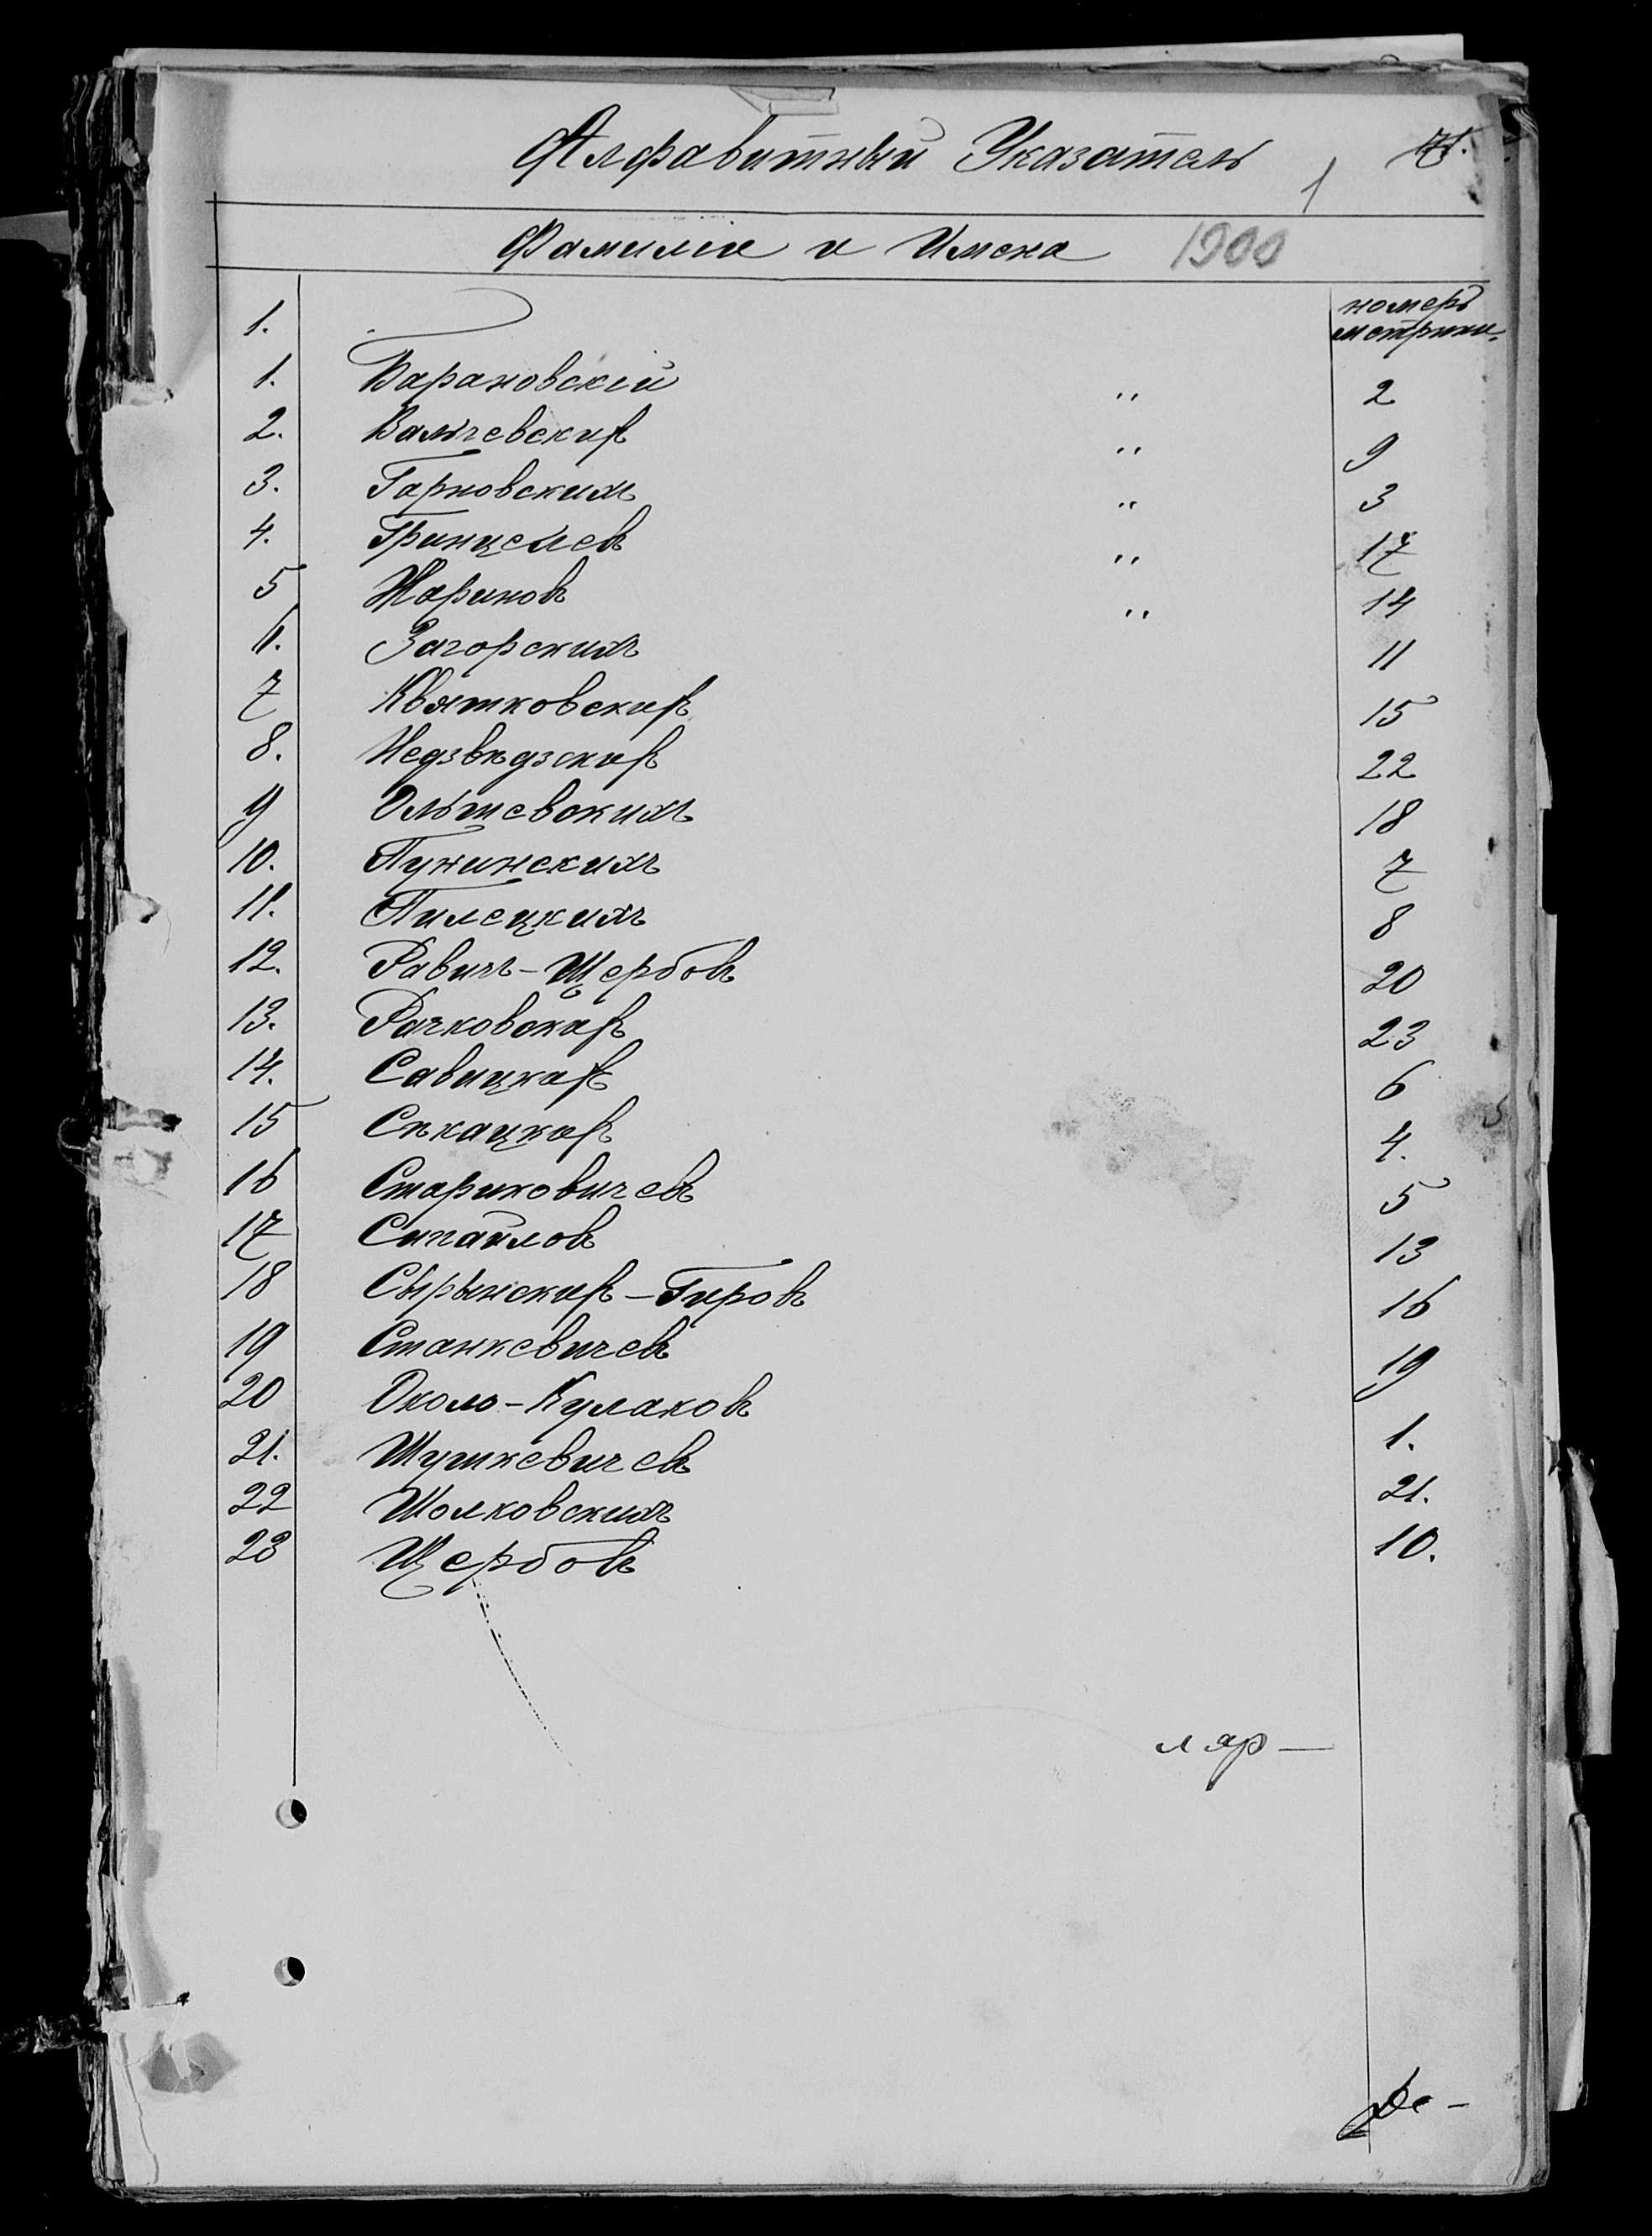 Алфавитный Указатель
1
Фамилiи и Имена 1900
номеръ
метрики.
1.
1. Барановскiй " 2
2. Вальчевскихъ " 9
3. Гарновскихъ " 3
4. Гринцелевъ " 17
5 Жариновъ " 14
6. Загорскихъ 11
7 Квятковскихъ 15
8. Недзвѣдзскихъ 22
9 Ольшевскихъ 18
10. Пунинскихъ 7
11. Пилецкихъ 8
12. Равичъ-Щербовъ 20
13. Рачковскихъ 23
14. Савицкихъ 6
15 Сѣкацкихъ 4.
16 Стариковичевъ 5
17 Сипайловъ 13
18 Сырынскихъ-Гировъ 16
19 Станкевичевъ 19
20 Околъ-Кулаковъ 1.
21. Шушкевичевъ 21.
22 Шолковскихъ 10.
23 Щербовъ